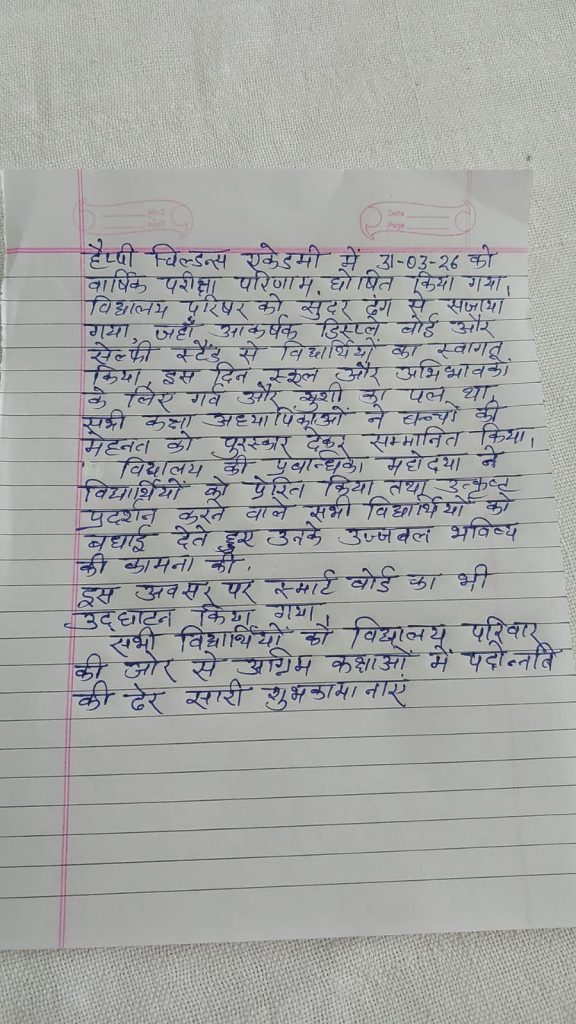 Date
Page
हैप्पी चिल्ड्रन्स एकेडमी में 31-03-26 को
वार्षिक परीक्षा परिणाम घोषित किया गया।
विद्यालय परिषर को सुंदर ढंग से सजाया
गया, जहाँ आकर्षक डिस्प्ले बोर्ड और
सेल्फी स्टैंड से विद्यार्थियों का स्वागत
किया, इस दिन स्कूल और अभिभावकों
के लिए गर्व और खुशी का पल था
सभी कक्षा अध्यापिकाओं ने बच्चों की
मेहनत को पुरस्कार देकर सम्मानित किया।
विद्यालय की प्रबन्धिका महोदया ने
विद्यार्थियों को प्रेरित किया तथा उत्कृष्ट
प्रदर्शन करने वाले सभी विद्यार्थियों को
बधाई देते हुए उनके उज्जवल भविष्य
की कामना की।
इस अवसर पर स्मार्ट बोर्ड का भी
उद्घाटन किया गया।
सभी विद्यार्थियों को विद्यालय परिवार
की ओर से अग्रिम कक्षाओं में पदोन्नति
की ढेर सारी शुभकामानाएं